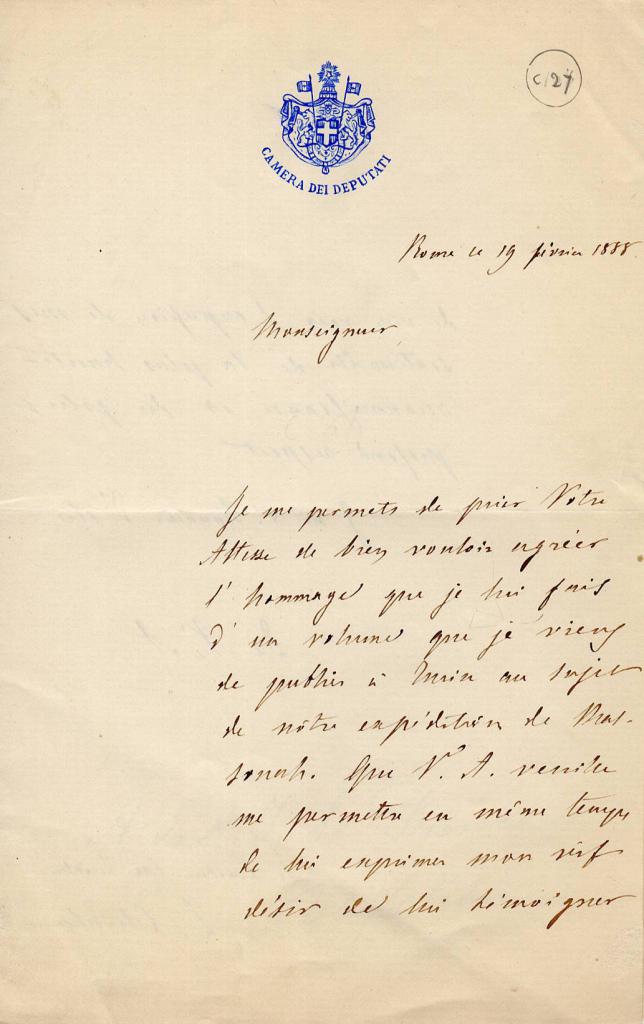 C/27
CAMERA DEI DEPUTATI
Rome le 19 février 1888.
Monseigneur
Je me permets de prier Votre
Altesse de bien vouloir agréer
l'hommage que je lui fais
d'un volume que je viens
de publier à Turin au sujet
de nôtre expédition de Mas-
sonah. Que V.e A. veuille
me permettre en même temps
de lui exprimer mon vif
désir de lui témoigner